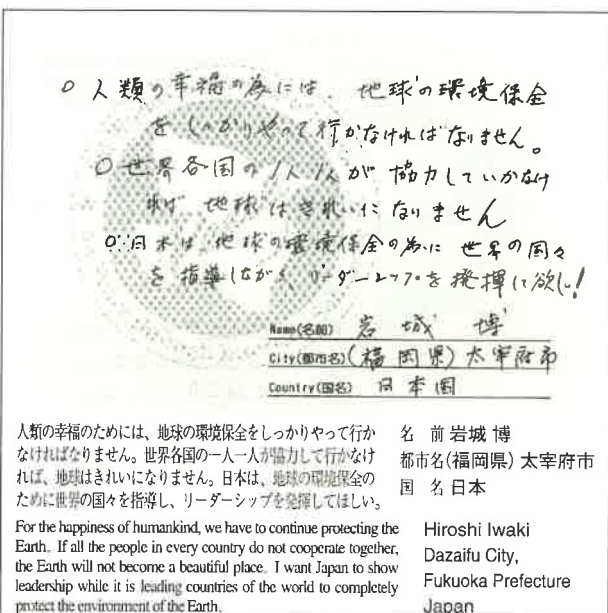 ○ 人類の幸福の為には、地球の環境保全
をしっかりやって行かなければなりません。
○ 世界各国の1人1人が協力していかなけ
れば 地球はきれいになりません
○ 日本は、地球の環境保全の為に 世界の国々
を指導しながら、リーダーシップを発揮して欲しい!
Name(名前) 岩城 博
City(都市名) (福岡県) 太宰府市
Country(国名) 日本国
人類の幸福のためには、地球の環境保全をしっかりやって行か
なければなりません。世界各国の一人一人が協力して行かなけ
れば、地球はきれいになりません。日本は、地球の環境保全の
ために世界の国々を指導し、リーダーシップを発揮してほしい。
名 前 岩城 博
都市名(福岡県) 太宰府市
国 名 日本
For the happiness of humankind, we have to continue protecting the
Earth. If all the people in every country do not cooperate together,
the Earth will not become a beautiful place. I want Japan to show
leadership while it is leading countries of the world to completely
protect the environment of the Earth.
Hiroshi Iwaki
Dazaifu City,
Fukuoka Prefecture
Japan